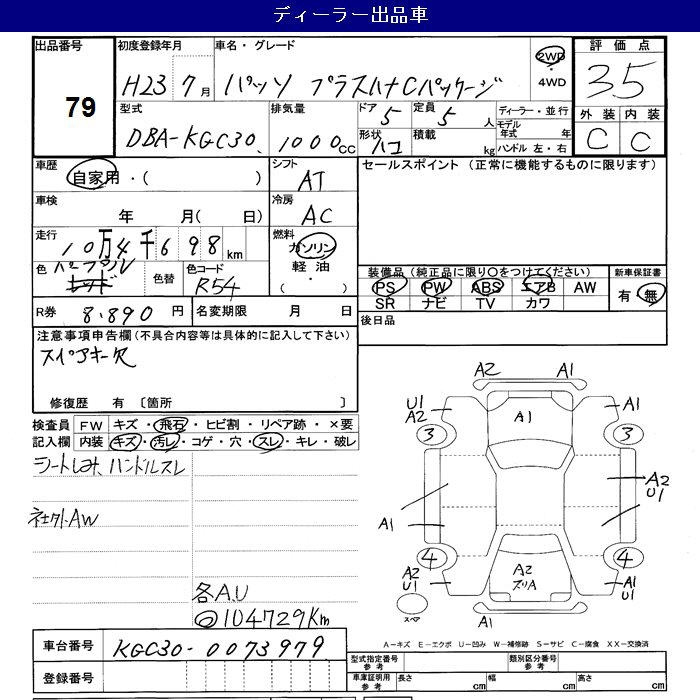 ディーラー出品車
出品番号 79
初度登録年月 H23年 7月
車名・グレード パッソ プラスハナCパッケージ
2WD・4WD
評価点 3.5
外装 C 内装 C
型式 DBA-KGC30
排気量 1000cc
ドア 5
形状 ハコ
定員 5人
積載 kg
ディーラー・並行
モデル年式 年
ハンドル 左・右
車歴 自家用・( )
シフト AT
セールスポイント (正常に機能するものに限ります)
車検 年 月( 日)
冷房 AC
走行 10万4千698km
燃料 ガソリン・軽油・( )
色 パープル
色替
色コード R54
装備品(純正品に限り○をつけてください)
PS PW ABS エアB AW
SR ナビ TV カワ
新車保証書 有・無
R券 8,890円
名変期限 月 日
後日品
注意事項申告欄(不具合内容等は具体的に記入して下さい)
スペアキー欠
修復歴 有 〔箇所 〕
検査員記入欄
FW キズ・飛石・ヒビ割・リペア跡・×要
内装 キズ・汚レ・コゲ・穴・スレ・キレ・破レ
シートしみ、ハンドルスレ
社外AW
各A.U
◎104729Km
A2 A1
U1 A2 A1 A1
3 3
A1 A2 U1
4 4
A2 U1 A2 ズリA A1 U1
スペア A1
A-キズ E-エクボ U-凹み W-補修跡 S-サビ C-腐食 XX-交換済
車台番号 KGC30-0073979
登録番号
型式指定番号 参考
類別区分番号 参考
車庫証明用 参考 長さ cm 幅 cm 高さ cm